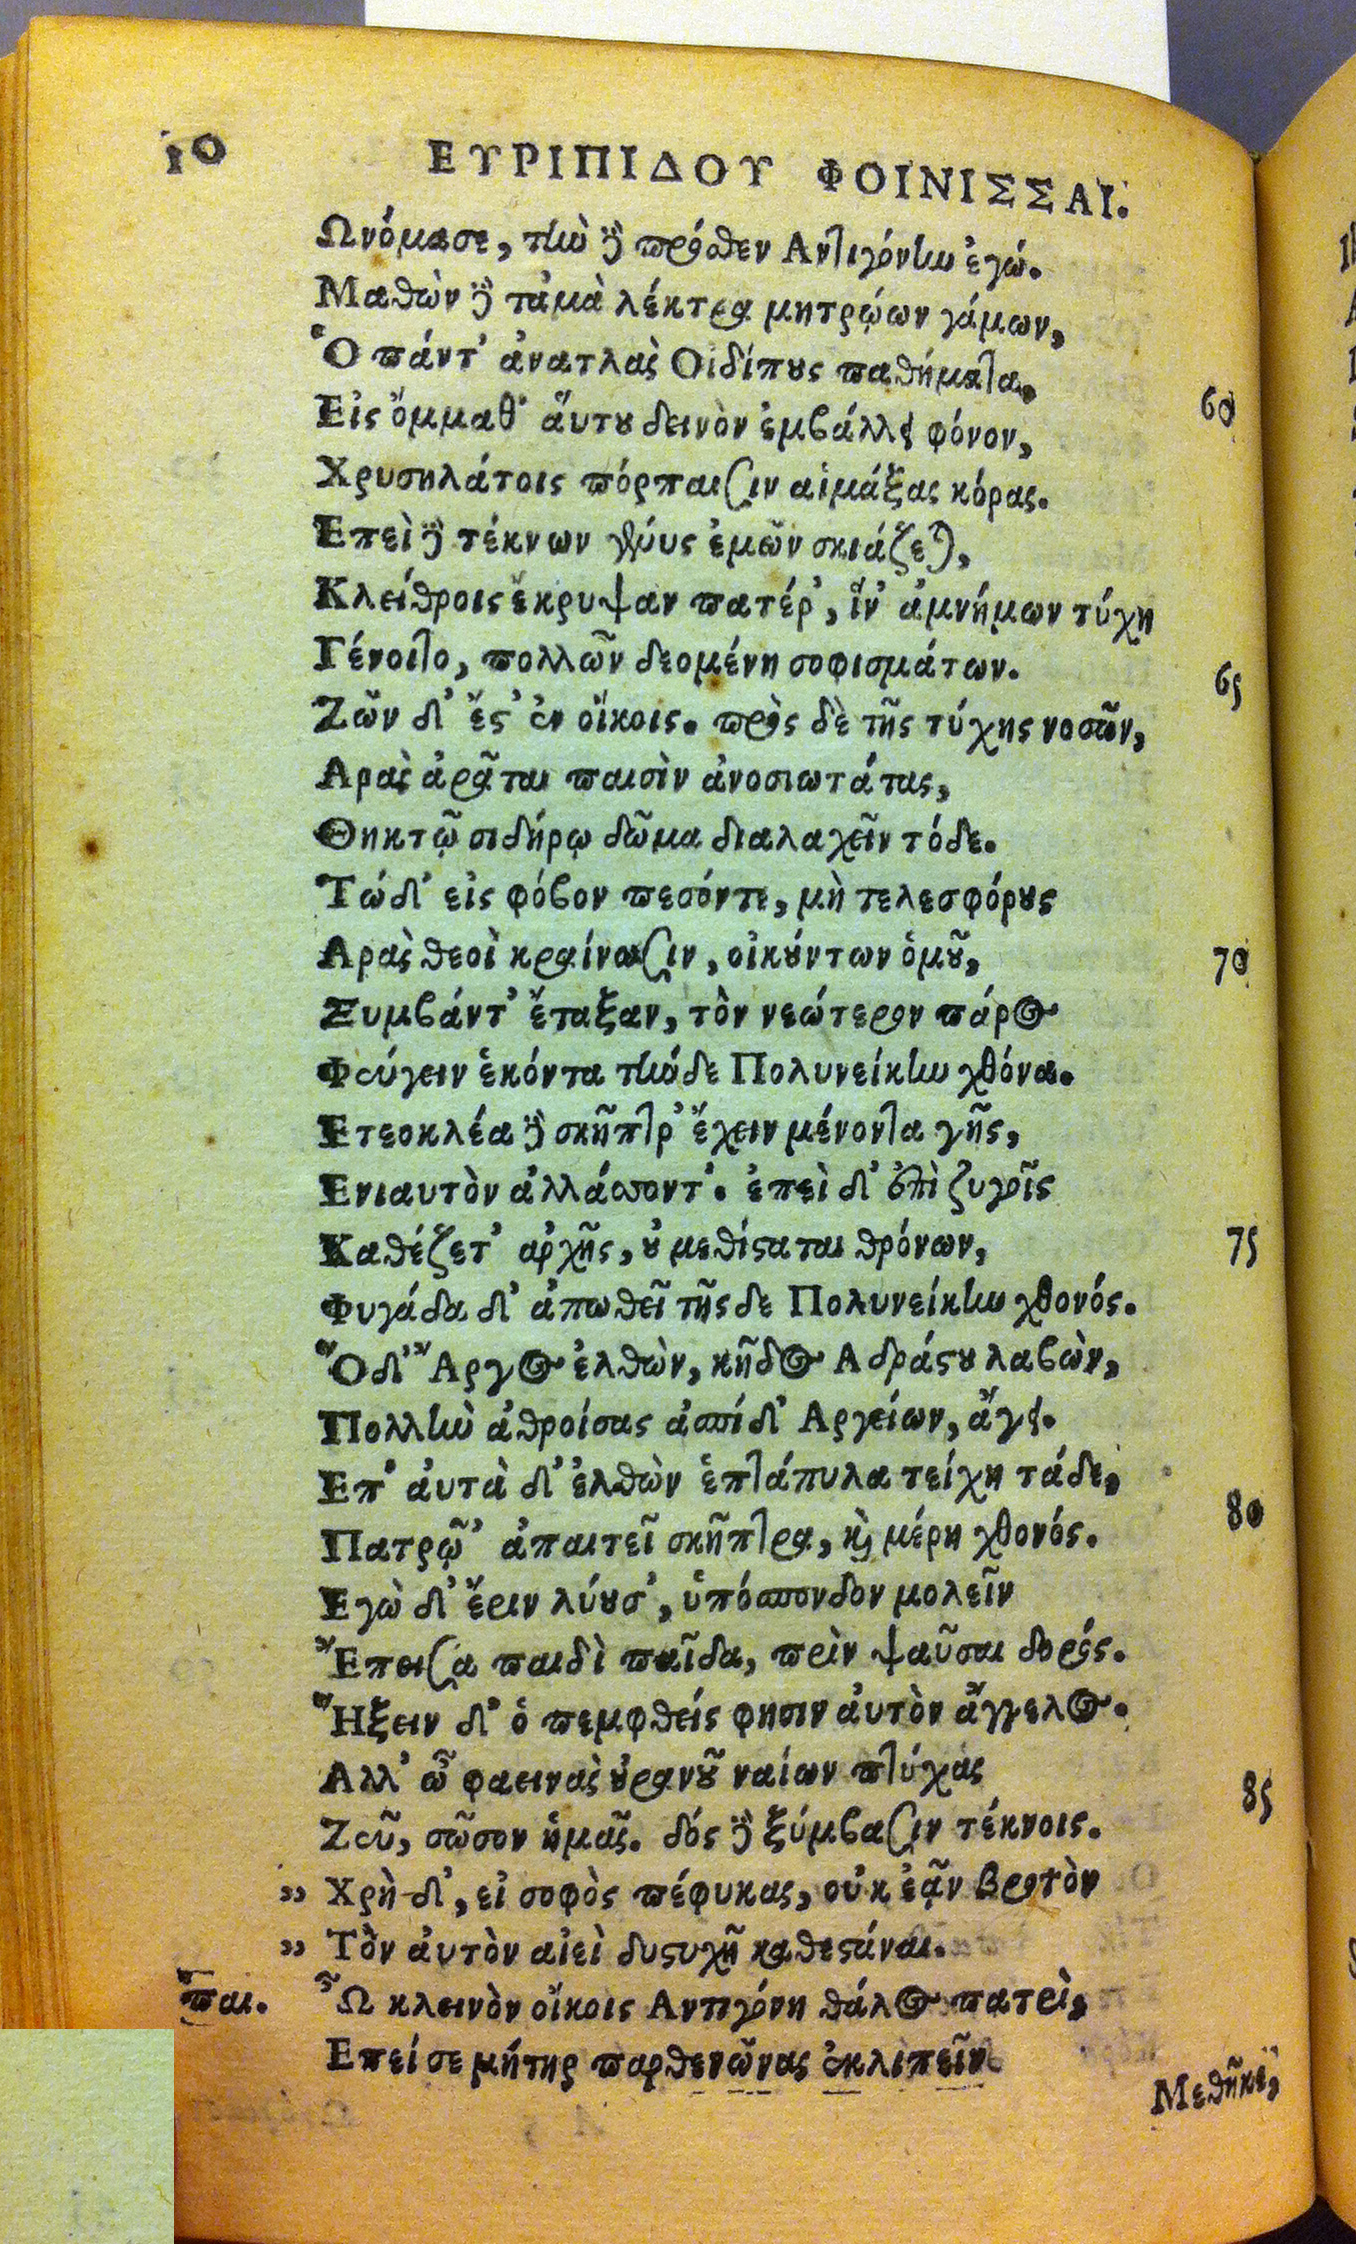 10 ΕΥΡΙΠΙΔΟΥ ΦΟΙΝΙΣΣΑΙ.
Ωνόμασε, τὴν δὲ πρόσθεν Αντιγόνην ἐγώ.
Μαθὼν δὲ τἀμὰ λέκτρα μητρῴων γάμων,
Ὁ πάντ' ἀνατλὰς Οἰδίπους παθήματα.
Εἰς ὄμμαθ' ἅυτου δεινὸν ἐμβάλλει φόνον, 60
Χρυσηλάτοις πόρπαισιν αἱμάξας κόρας.
Επεὶ δὲ τέκνων γένυς ἐμῶν σκιάζεται,
Κλείθροις ἔκρυψαν πατέρ', ἵν' ἀμνήμων τύχη
Γένοιτο, πολλῶν δεομένη σοφισμάτων.
Ζῶν δ' ἔστ' ἐν οἴκοις. πρὸς δὲ τῆς τύχης νοσῶν, 65
Αρὰς ἀρᾶται παισὶν ἀνοσιωτάτας,
Θηκτῷ σιδήρῳ δῶμα διαλαχεῖν τόδε.
Τώ δ' εἰς φόβον πεσόντε, μὴ τελεσφόρους
Αρὰς θεοὶ κραίνουσιν, οἰκούντων ὁμοῦ, 70
Ξυμβάντ' ἔταξαν, τὸν νεώτερον πάρος
Φεύγειν ἑκόντα τήνδε Πολυνείκην χθόνα.
Ετεοκλέα δὲ σκῆπτρ' ἔχειν μένοντα γῆς,
Ενιαυτὸν ἀλλάσσοντ'. ἐπεὶ δ' ἐπὶ ζυγοῖς
Καθέζετ' ἀρχῆς, οὐ μεθίσταται θρόνων, 75
Φυγάδα δ' ἀπωθεῖ τῆς δε Πολυνείκην χθονός.
Ὃ δ' Ἄργος ἐλθὼν, κῆδος Αδράστου λαβὼν,
Πολλὴν ἀθροίσας ἀσπίδ' Αργείων, ἄγει.
Επ' ἀυτὰ δ' ἐλθὼν ἑπτάπυλα τείχη τάδε,
Πατρῷ' ἀπαιτεῖ σκῆπτρα, καὶ μέρη χθονός. 80
Εγὼ δ' ἔριν λύουσ', ὑπόσπονδον μολεῖν
Ἔπεισα παιδὶ παῖδα, πρὶν ψαῦσαι δορός.
Ἥξειν δ' ὁ πεμφθείς φησιν ἀυτὸν ἄγγελος.
Αλλ' ὦ φαεινὰς οὐρανοῦ ναίων πτύχας
Ζεῦ, σῶσον ἡμᾶς. δός δὲ ξύμβασιν τέκνοις. 85
" Χρὴ δ', εἰ σοφὸς πέφυκας, οὐκ ἐᾷν βροτὸν
" Τὸν ἀυτὸν αἰεὶ δυστυχῆ καθεστάναι.
παι. Ὦ κλεινὸν οἴκοις Αντιγόνη θάλος πατρὶ,
Επεί σε μήτηρ παρθενῶνας ἐκλιπεῖν
Μεθῆκε,